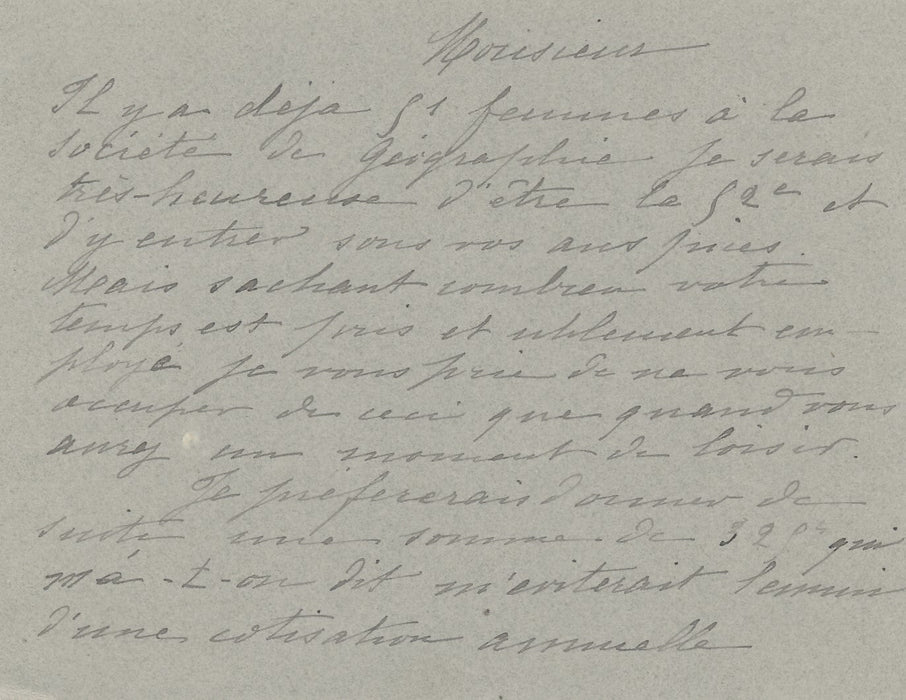 Monsieur
Il y a déjà 51 femmes à la
société de Géographie je serais
très-heureuse d'être la 52e et
d'y entrer sous vos auspices.
Mais sachant combien votre
temps est pris et utilement em-
ployé je vous prie de ne vous
occuper de ceci que quand vous
aurez un moment de loisir.
Je préfererais donner de
suite une somme de 325fr qui
m'a-t-on dit m'eviterait l'ennui
d'une cotisation annuelle